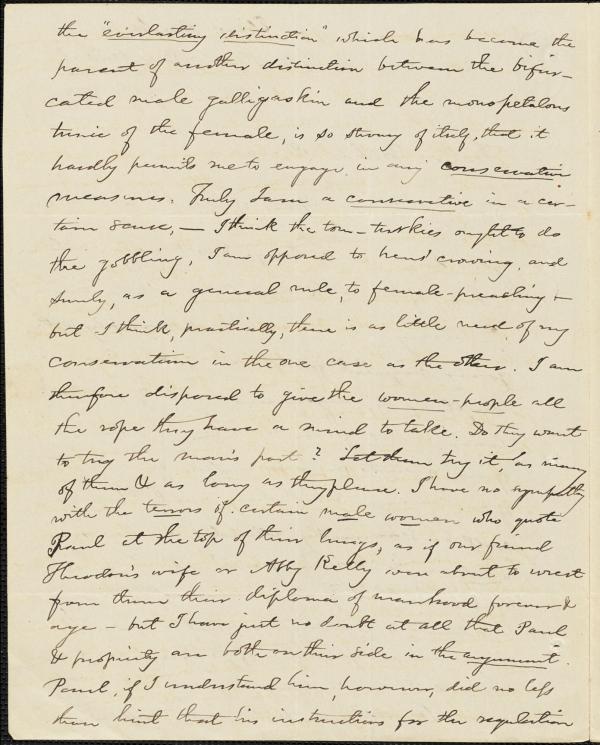 the "everlasting distinction" which has become the
parent of another distinction between the bifur-
cated male galligaskin and the monopetalous
tunic of the female, is so strong of itself, that it
hardly permits me to engage in any conservative
measures. Truly I am a conservative in a cer-
tain sense, — I think the tom-turkies ought to do
the gobbling, I am opposed to hens' crowing, and
surely, as a general rule, to female-preaching —
but I think, practically, there is as little need of my
conservatism in the one case as the other. I am
therefore disposed to give the women-people all
the rope they have a mind to take. Do they want
to try the man's part? Let them try it, as many
of them & as long as they please. I have no sympathy
with the terrors of certain male women who quote
Paul at the top of their lungs, as if our friend
Theodore's wife or Abby Kelly were about to wrest
from them their diploma of manhood forever &
aye — but I have just no doubt at all that Paul
& propriety are both on their side in the argument.
Paul, if I understand him, however, did no less
than hint that his instructions for the regulation